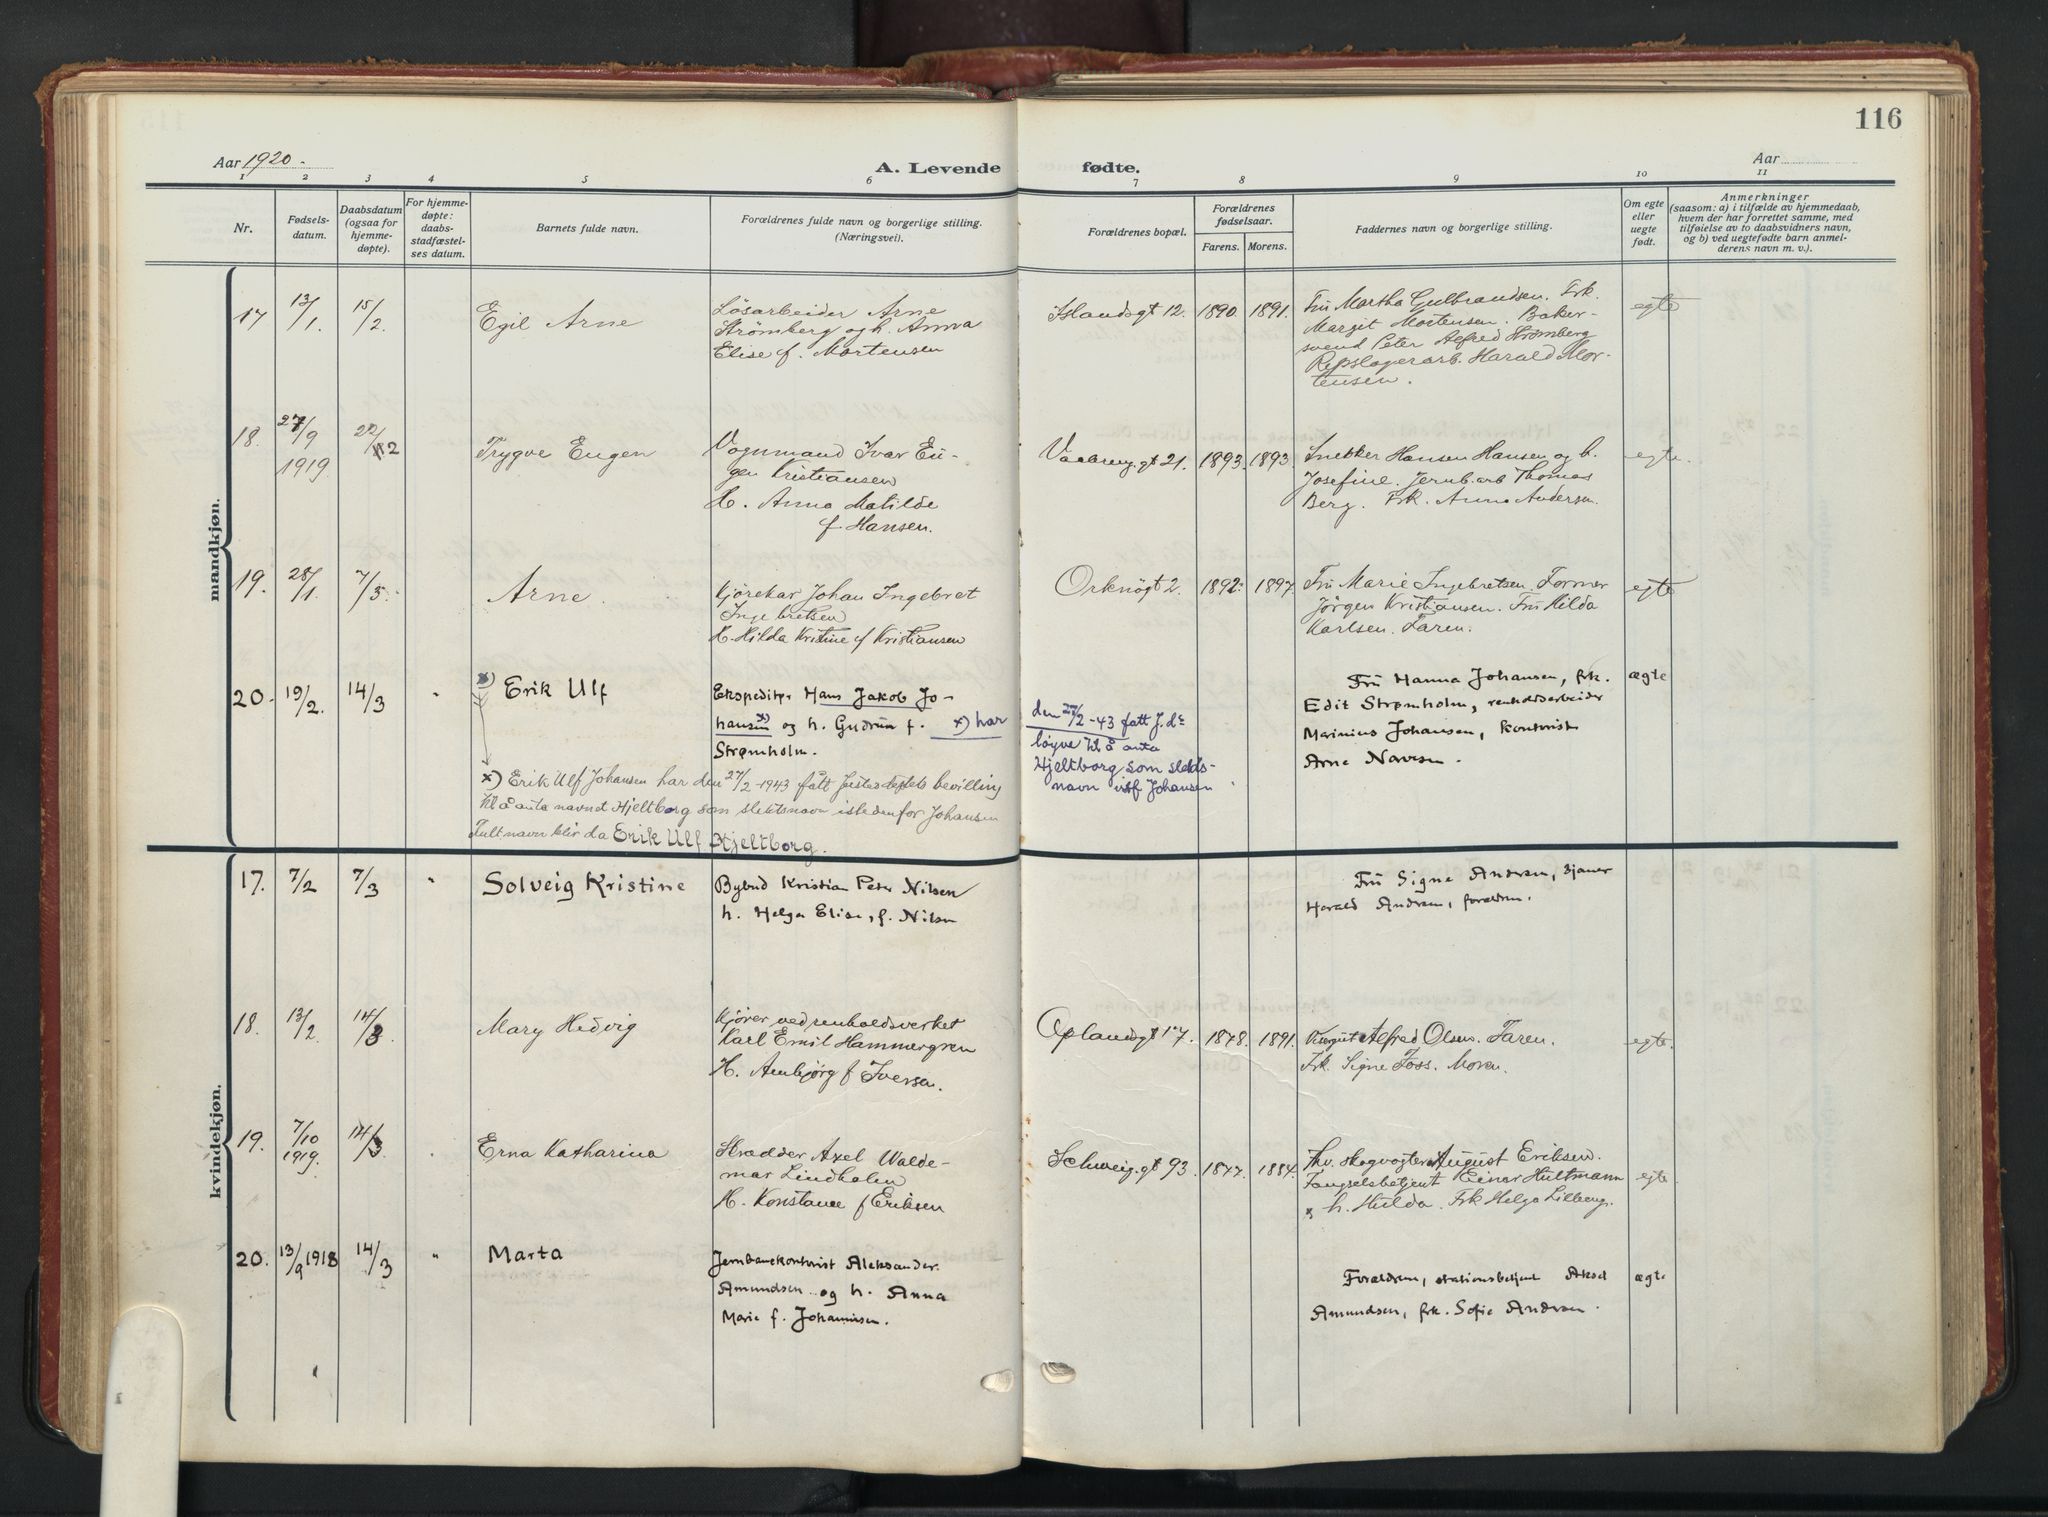 116
Aar 1920.
A. Levende
fødte.
Aar
1 2 3 4 5 6 7 8 9 10 11
Nr.
Fødsels-
datum.
Daabsdatum
(ogsaa for
hjemme-
døpte).
For hjemme-
døpte:
daabs-
stadfæstel-
ses datum.
Barnets fulde navn.
Forældrenes fulde navn og borgerlige stilling.
(Næringsvei).
Forældrenes bopæl.
Forældrenes
fødselsaar.
Farens. Morens.
Faddernes navn og borgerlige stilling.
Om egte
eller
uegte
født.
Anmerkninger
(saasom: a) i tilfælde av hjemmedaab,
hvem der har forrettet samme, med
tilføielse av to daabsvidners navn,
og b) ved uegtefødte barn anmel-
derens navn m. v.).
mandkjøn.
17 13/1. 15/2. Egil Arne
Løsarbeider Arne
Strömberg og h. Anna
Elise f. Mortensen
Islandsgt 12. 1890. 1891.
Fru Martha Gulbrandsen. Frk.
Margit Mortensen. Baker-
svend Peter Alfred Strömberg
Repslagerarb. Harald Mor-
tensen.
egte
18. 27/9 1919. 22/2 Trygve Eugen
Vognmand Ivar Eu-
gen Kristiansen
H. Anna Matilde
f. Hansen.
Vaalreng.gt 21. 1893. 1893.
Snekker Hansen Hansen og h.
Josefine. Jernb.arb Thomas
Berg. Frk. Anna Andersen.
egte.
19. 28/1. 7/3. Arne.
Kjørekar Johan Ingebret
Ingebretsen
H. Hilda Kristine f Kristiansen
Orknögt 2. 1892. 1897.
Fru Marie Ingebretsen. Former
Jörgen Kristiansen. Fru Hilda
Karlsen. Faren.
egte
20. 19/2. 14/3 " x) Erik Ulf
Ekspeditør Hans Jakob Jo-
hansen x) og h. Gudrun f. x) har
Strømholm.
den 27/2-43 fått J.d=
løyve til å anta
Hjeltborg som slekts-
navn istf Johansen
Fru Hanna Johansen, frk.
Edit Strømholm, renholdsarbeider
Marinius Johansen, kontorist
Arne Navesen.
ægte
x) Erik Ulf Johansen har den 27/2-1943 fått Justisdeptets bevilling
til å anta navnet Hjeltborg som slektsnavn istedenfor Johansen
Fullt navn blir da Erik Ulf Hjeltborg.
kvindekjøn.
17. 7/2 7/3 " Solveig Kristine
Bybud Kristian Peter Nilsen
h. Helga Elise, f. Nilsen
Fru Signe Andresen,
Harald Andresen, forældrene.
18. 13/2. 14/3. Mary Hedvig
Kjører ved renholdsverket
Karl Emil Hammergren
H. Arnbjørg f Iversen.
Oplandsgt 17. 1878. 1891.
Alfred Olsen. Faren.
Frk. Signe Foss. Moren.
egte.
19. 7/10 1919. 14/3. Erna Katharina
Skrædder Axel Walde-
mar Lindholm
H. Konstance f Eriksen
Schweig.gt 93. 1877. 1884.
Fhv. skogvogter August Eriksen.
Fængselsbetjent Einar Hultmann
h. Hulda. Frk Helga Lilberg.
egte
20. 13/9 1918 14/3 " Marta
Jernbanekontorist Aleksander
Amundsen og h. Anna
Marie f. Johannessen.
Forældrene, stationsbetjent Aksel
Amundsen, frk. Sofie Andresen.
ægte